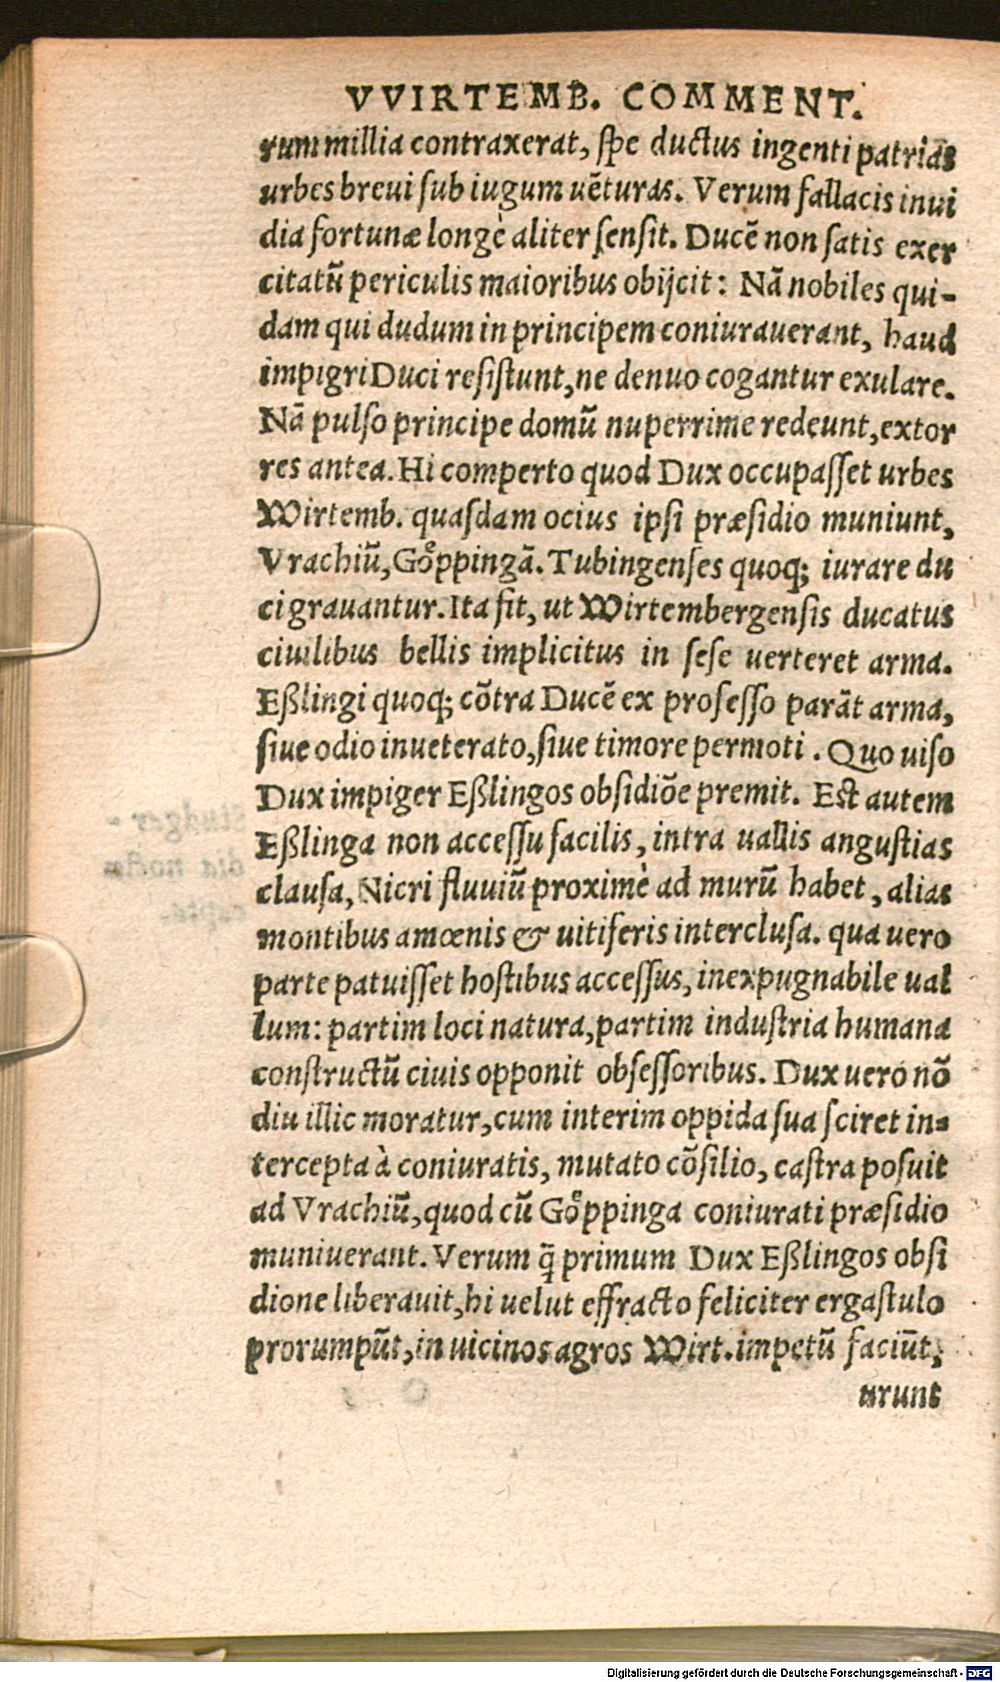 VVIRTEMB. COMMENT.
rum millia contraxerat, ſpe ductus ingenti patrias
urbes breui ſub iugum uẽturas. Verum fallacis inui
dia fortunæ longè aliter ſenſit. Ducẽ non ſatis exer
citatũ periculis maioribus obijcit: Nã nobiles qui-
dam qui dudum in principem coniurauerant, haud
impigri Duci reſiſtunt, ne denuo cogantur exulare.
Nã pulſo principe domũ nuperrime redeunt, extor
res antea. Hi comperto quod Dux occupaſſet urbes
Wirtemb. quaſdam ocius ipſi præſidio muniunt,
Vrachiũ, Goͤppingã. Tubingenſes quoq; iurare du
ci grauantur. Ita fit, ut Wirtembergenſis ducatus
ciuilibus bellis implicitus in ſeſe uerteret arma.
Eßlingi quoq; cõtra Ducẽ ex profeſſo parãt arma,
ſiue odio inueterato, ſiue timore permoti. Quo uiſo
Dux impiger Eßlingos obſidiõe premit. Eſt autem
Eßlinga non acceſſu facilis, intra uallis anguſtias
clauſa, Nicri fluuiũ proximè ad murũ habet, alias
montibus amœnis & uitiferis intercluſa. qua uero
parte patuiſſet hoſtibus acceſſus, inexpugnabile ual
lum: partim loci natura, partim induſtria humana
conſtructũ ciuis opponit obſeſſoribus. Dux uero nõ
diu illic moratur, cum interim oppida ſua ſciret in-
tercepta à coniuratis, mutato cõſilio, caſtra poſuit
ad Vrachiũ, quod cũ Goͤppinga coniurati præſidio
muniuerant. Verum q̃ primum Dux Eßlingos obſi
dione liberauit, hi uelut effracto feliciter ergaſtulo
prorumpũt, in uicinos agros Wirt. impetũ faciũt,
urunt
Digitalisierung gefördert durch die Deutsche Forschungsgemeinschaft - DFG